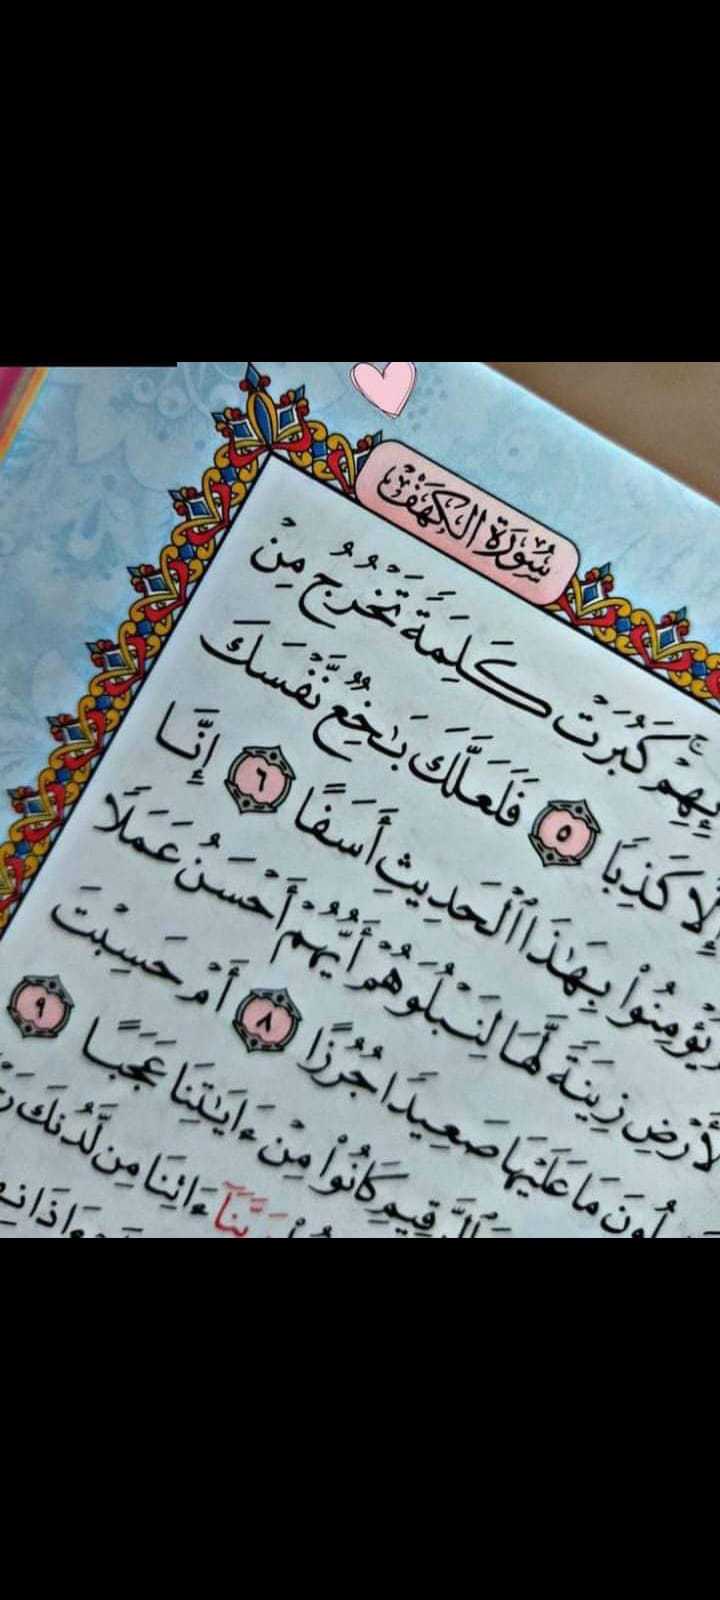 سُورَةُ الكَهْفِ
كَبُرَتْ كَلِمَةً تَخْرُجُ مِنْ
إِلَّا كَذِبًا ٥ فَلَعَلَّكَ بَٰخِعٌ نَّفْسَكَ
يُؤْمِنُوا۟ بِهَٰذَا ٱلْحَدِيثِ أَسَفًا ٦ إِنَّا
زِينَةً لَّهَا لِنَبْلُوَهُمْ أَيُّهُمْ أَحْسَنُ عَمَلًا
مَا عَلَيْهَا صَعِيدًا جُرُزًا ٨ أَمْ حَسِبْتَ
كَانُوا۟ مِنْ ءَايَٰتِنَا عَجَبًا ٩
رَبَّنَآ ءَاتِنَا مِن لَّدُنكَ